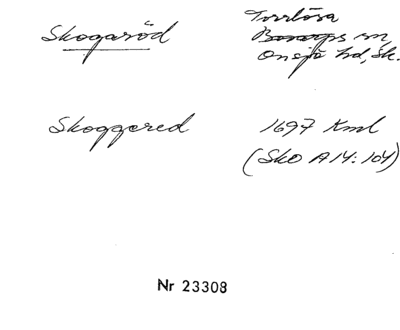 Skogaröd
Torrlösa
Bosarps sn,
Onsjö hd, Sk.
Skoggered
1697 Kml
(Sko A 14: 104)
Nr 23308